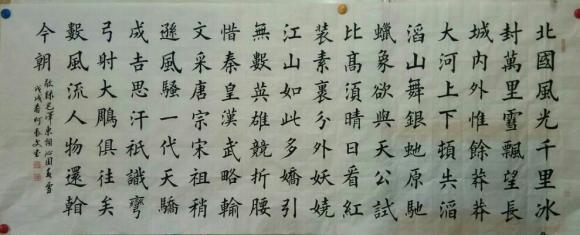 北國風光千里冰
封萬里雪飄望長
城內外惟餘莽莽
大河上下頓失滔
滔山舞銀虵原馳
蠟象欲與天公試
比髙須晴日看紅
裝素裹分外妖嬈
江山如此多嬌引
無數英雄競折腰
惜秦皇漢武略輸
文采唐宗宋祖稍
遜風騷一代天驕
成吉思汗祇識彎
弓射大鵰俱往矣
數風流人物還
今朝
敬錄毛澤東詞沁園春雪
戊戌春